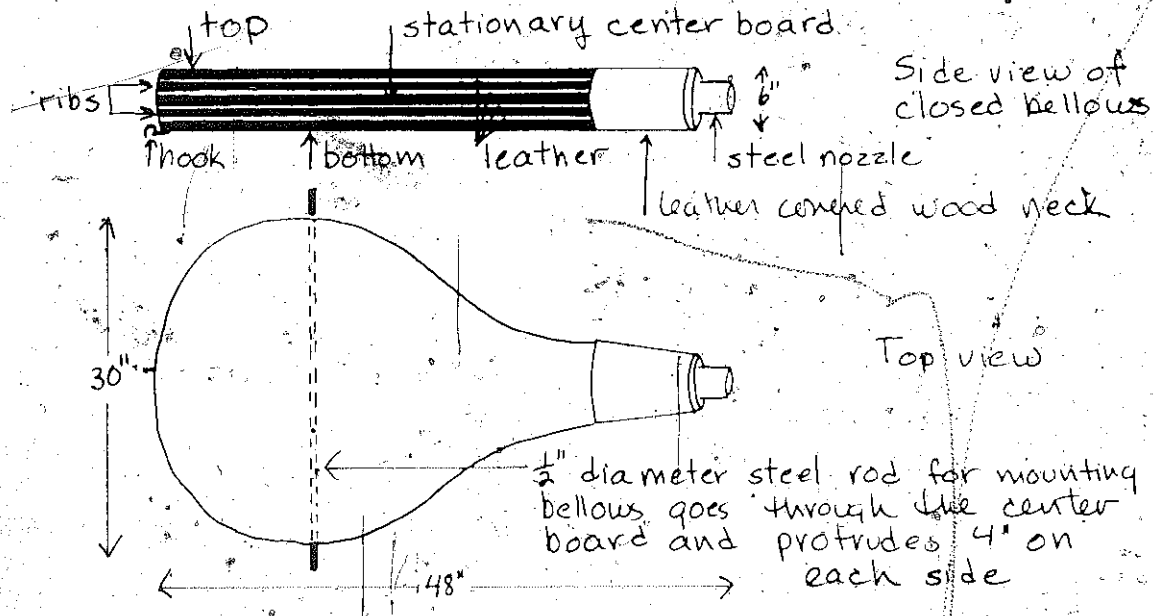 top
stationary center board
ribs
6"
Side view of
closed bellows
hook
bottom
leather
steel nozzle
leather covered wood neck
30"
Top view
1/2" diameter steel rod for mounting
bellows goes through the center
board and protrudes 4" on
each side
48"